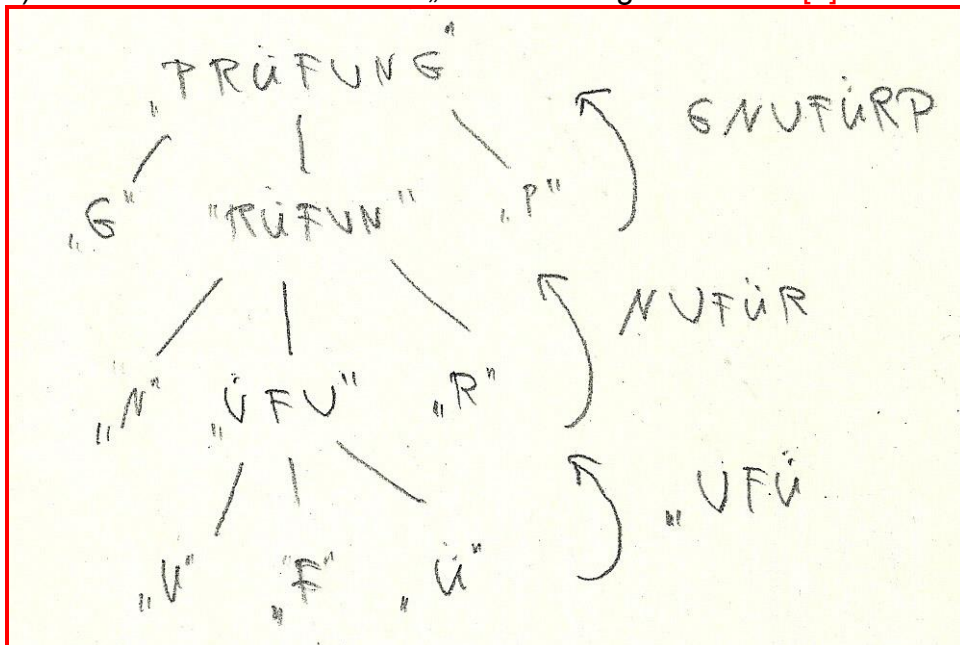 „PRÜFUNG"
GNUFÜRP
„G" "RÜFUN" „P"
NUFÜR
„N" „ÜFU" „R"
„UFÜ
„U" „F" „Ü"